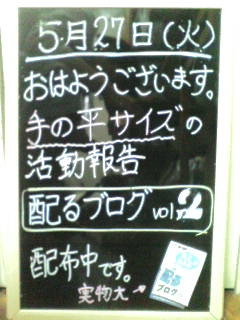 5月27日(火)
おはようございます。
手の平サイズの
活動報告
配るブログ vol.2
配布中です。
実物大→
ブログ